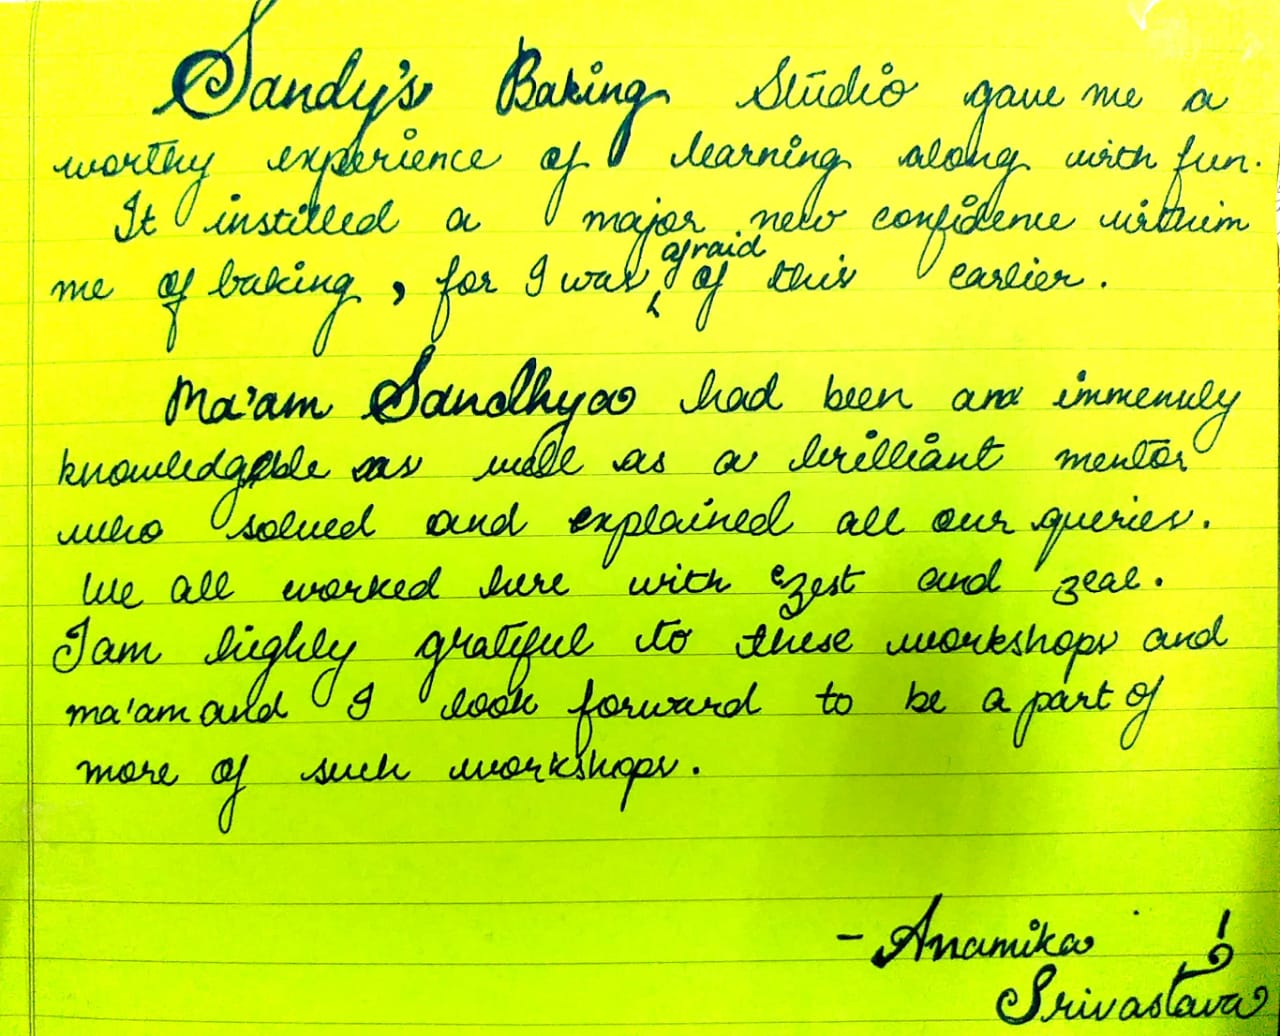 Sandy's Baking Studio gave me a
worthy experience of learning along with fun.
It instilled a major new confidence within
me of baking, for I was afraid of this earlier.
Ma'am Sandhya had been an immensely
knowledgeable as well as a brilliant mentor
who solved and explained all our queries.
We all worked here with zest and zeal.
I am highly grateful to these workshops and
ma'am and I look forward to be a part of
more of such workshops.
- Anamika
Srivastava